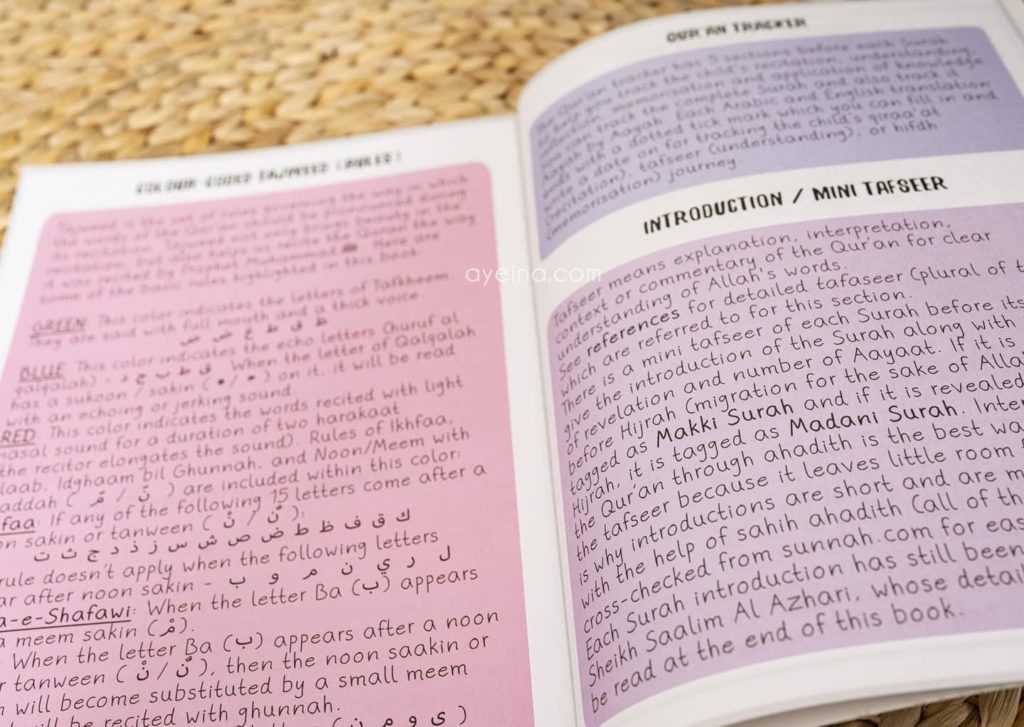 COLOUR-CODED TAJWEED (RULES)
Tajweed is the set of rules governing the way in which
the words of the Qur'an should be pronounced during
its recitation. Tajweed not only brings beauty in the
recitation, but also helps us recite the Qur'an the way
it was recited by Prophet Muhammad ﷺ. Here are
some of the basic rules highlighted in this book:
GREEN: This color indicates the letters of Tafkheem.
They are said with full mouth and a thick voice.
BLUE: This color indicates the echo letters (huruf al
qalqalah) - ق ط ب ج د. When the letter of Qalqalah
has a sukoon / sakin on it, it will be read
with an echoing or jerking sound.
RED: This color indicates the words recited with light
nasal sound for a duration of two harakaat
the recitor elongates the sound). Rules of Ikhfaa,
laab, Idghaam bil Ghunnah, and Noon/Meem with
addah (نّ / مّ) are included within this color:
faa: If any of the following 15 letters come after a
on sakin or tanween
ك ق ف ظ ط ض ص ش س ز ذ د ج ث ت
rule doesn't apply when the following letters
ar after noon sakin - ل ر ي ن م و ب
a-e-Shafawi: When the letter Ba (ب) appears
a meem sakin (مْ).
When the letter Ba (ب) appears after a noon
or tanween, then the noon saakin or
n will become substituted by a small meem
will be recited with ghunnah.
(ي و م ن)
QUR'AN TRACKER
The Qur'an tracker has 5 sections before each Surah
to help you track the child's recitation, understanding,
reflection, memorisation and application of knowledge.
You can track the complete Surah and also track it
Aayah by Aayah. Each Arabic and English translation
ends with a dotted tick mark which you can fill in and
write a date on for tracking the child's qiraa'at
(recitation), tafseer (understanding), or hifdh
(memorisation) journey.
INTRODUCTION / MINI TAFSEER
Tafseer means explanation, interpretation,
context or commentary of the Qur'an for clear
understanding of Allah's words.
See references for detailed tafaseer (plural of t
which are referred to for this section.
There is a mini tafseer of each Surah before its
give the introduction of the Surah along with
of revelation and number of Aayaat. If it is
before Hijrah (migration for the sake of Alla
tagged as Makki Surah and if it is revealed
Hijrah, it is tagged as Madani Surah. Inter
the Qur'an through ahadith is the best wa
the tafseer because it leaves little room f
is why introductions are short and are m
with the help of sahih ahadith (all of th
cross-checked from sunnah.com for eas
Each Surah introduction has still been
Sheikh Saalim Al Azhari, whose detail
be read at the end of this book.
ayeina.com